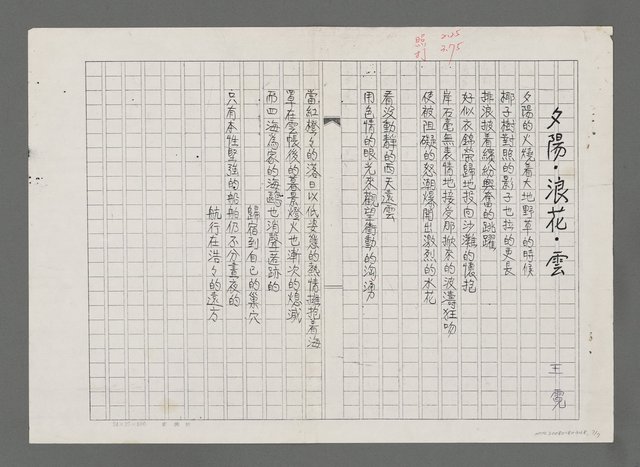 夕陽・浪花・雲
王霓
夕陽的火燒着大地野草的時候
椰子樹對照的影子也拉的更長
排浪披着繽紛興奮的跳躍
好似衣錦榮歸地投向沙灘的懷抱
岸石毫無表情地接受那掀來的波濤狂吻
使被阻礙的怒潮爆開出激烈的水花
看沒動靜的西天遠雲
用色情的眼光來觀望衝動的洶湧
當紅橙々的落日以低姿態的熱情擁抱着海
罩在雲帳後的暮景燈火也漸次的熄滅
而四海為家的海鷗也消聲匿跡的
歸宿到自已的巢穴
只有本性堅強的船舶仍不分晝夜的
航行在浩々的遠方
照打
2.25
2.75
24×25=600